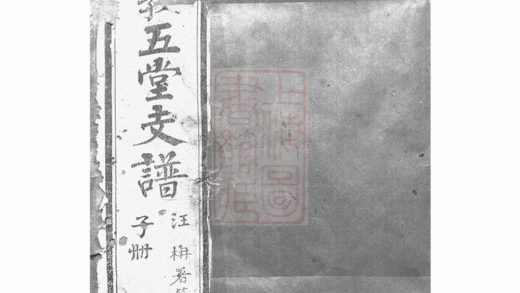 上海圖
書館藏
五堂支譜
汪署
子冊